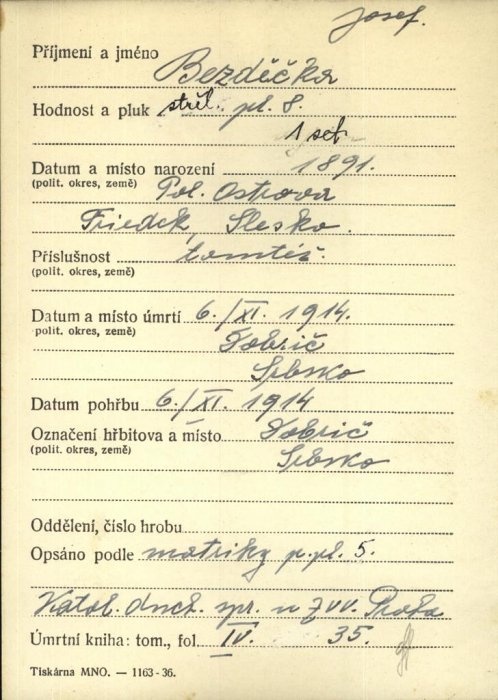 Josef.
Příjmení a jméno Bezděčka
Hodnost a pluk střel. pl. 8.
1 setn
Datum a místo narození 1891.
(polit. okres, země) Pol. Ostrova
Friedek, Slesko.
Příslušnost tomtéž.
(polit. okres, země)
Datum a místo úmrtí 6./XI. 1914.
polit. okres, země) Dobrič
Srbsko
Datum pohřbu 6./XI. 1914
Označení hřbitova a místo Dobrič
(polit. okres, země) Srbsko
Oddělení, číslo hrobu
Opsáno podle matriky p. pl. 5.
Katol. duch. spr. u ZVV. Praha
Úmrtní kniha: tom., fol. IV. 35.
Tiskárna MNO. — 1163-36.